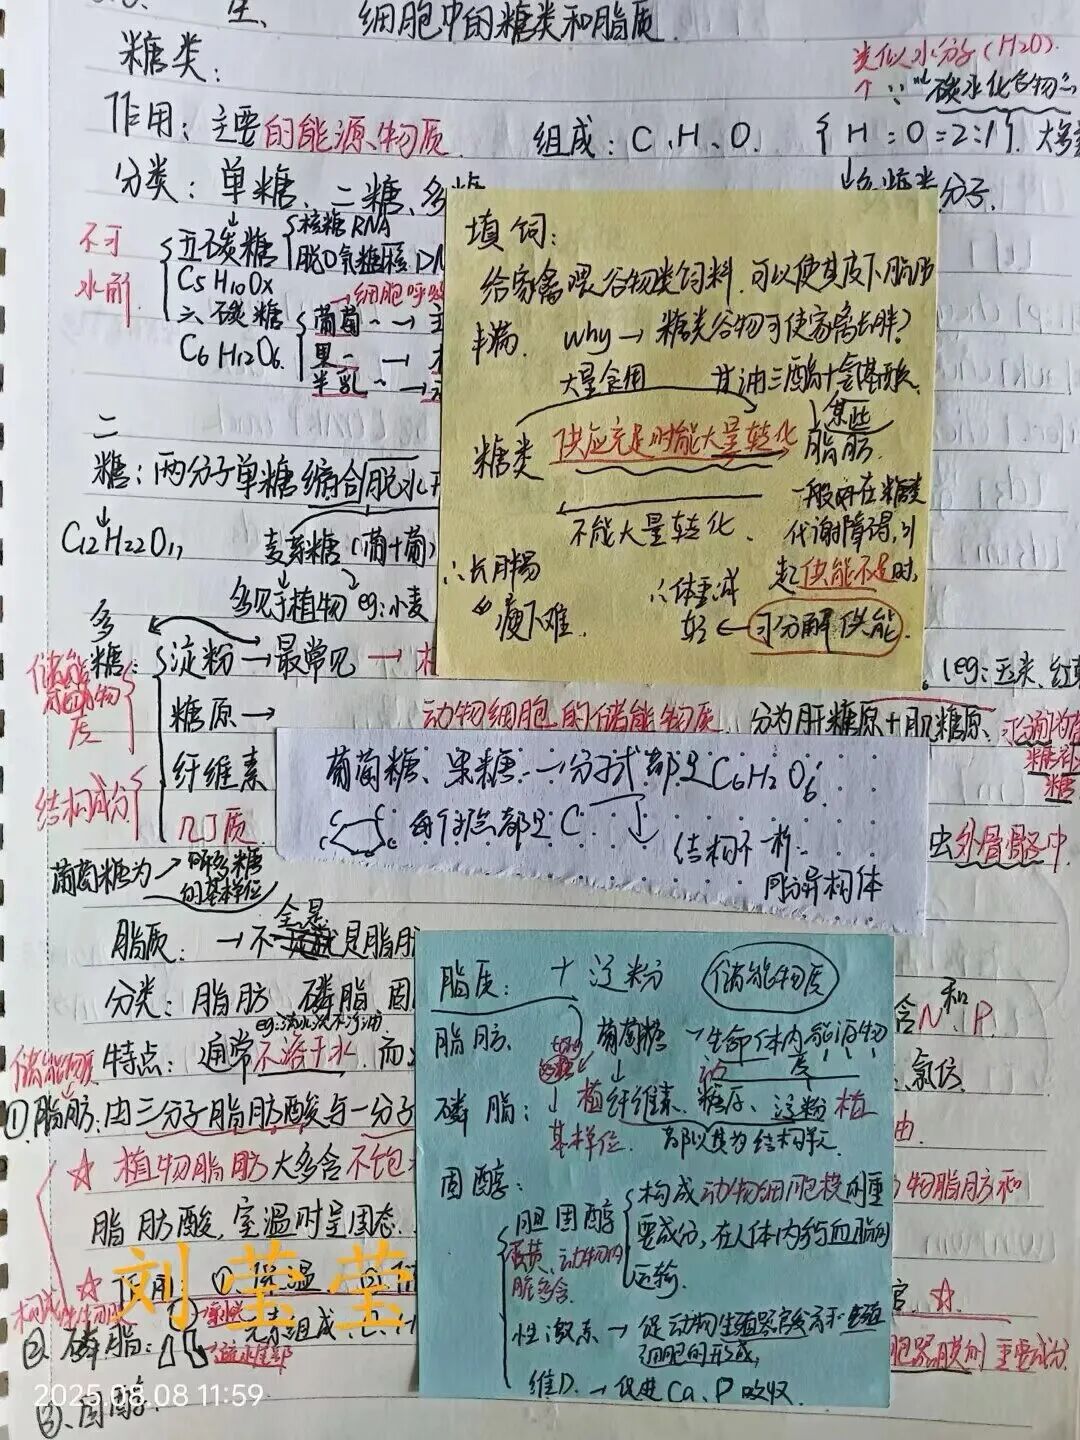 生、 细胞中的糖类和脂质
糖类:
类似水分子(H2O)
↑ ∵“碳水化合物”
作用:主要的能源物质 组成:C、H、O. {H:O=2:1}.大多
分类:单糖、二糖、多糖 分子.
不可
水解
五碳糖 {核糖RNA
脱O氧核糖 DN
C5H10Ox
→细胞呼
六碳糖
C6H12O6.
葡萄~→主
果~ →
半乳~→
填饲:
给家禽喂谷物类饲料,可以使其皮下脂肪
丰满. why→糖类谷物可使家禽长胖?
大量食用 甘油三酯
糖类 供应充足时能大量转化 某些
脂肪.
不能大量转化. 一般只在糖类
代谢障碍,引
起供能不足时,
可分解供能.
∴长胖易
瘦下难.
∴体重减
轻←
二
糖:两分子单糖缩合脱水
C12H22O11
麦芽糖(葡+葡)
多见于植物 eg:小麦
多
糖:
储能
物
质
淀粉→最常见→ (eg:玉米、红
糖原→ 动物细胞的储能物质 分为肝糖原+肌糖原.
纤维素
几丁质
结构成分
葡萄糖、果糖.→分子式都是C6H2O6.
每个拐点都是C. →结构不一样.
同分异构体
虫外骨骼中
葡萄糖为→ 多糖
的基本单位
脂质:→不全是脂肪
分类:脂肪 磷脂 固 含N和P
特点:通常不溶于水.而 氯仿
储能物质
①脂肪:由三分子脂肪酸与一分子 由.
☆植物脂肪大多含不饱 物脂肪和
脂肪酸,室温时呈固态.
☆作用 ①保温 ☆
②磷脂: 元素组成 胞器膜的重要成分
③、固醇.
脂质: +淀粉 储能物质
脂肪. 葡萄糖 →生命体内能源物
质
磷脂: 植 纤维素、糖原、淀粉 植
动
基本单位. 都以其为结构单元.
固醇:
胆固醇 {构成动物细胞膜的重
要成分,在人体内参与血脂的
运输.
蛋黄、动物内
脏多含.
性激素→促动物生殖器官发育和生殖
细胞的形成,
维D.→促进Ca、P吸收
刘莹莹
2025.08.08 11:59